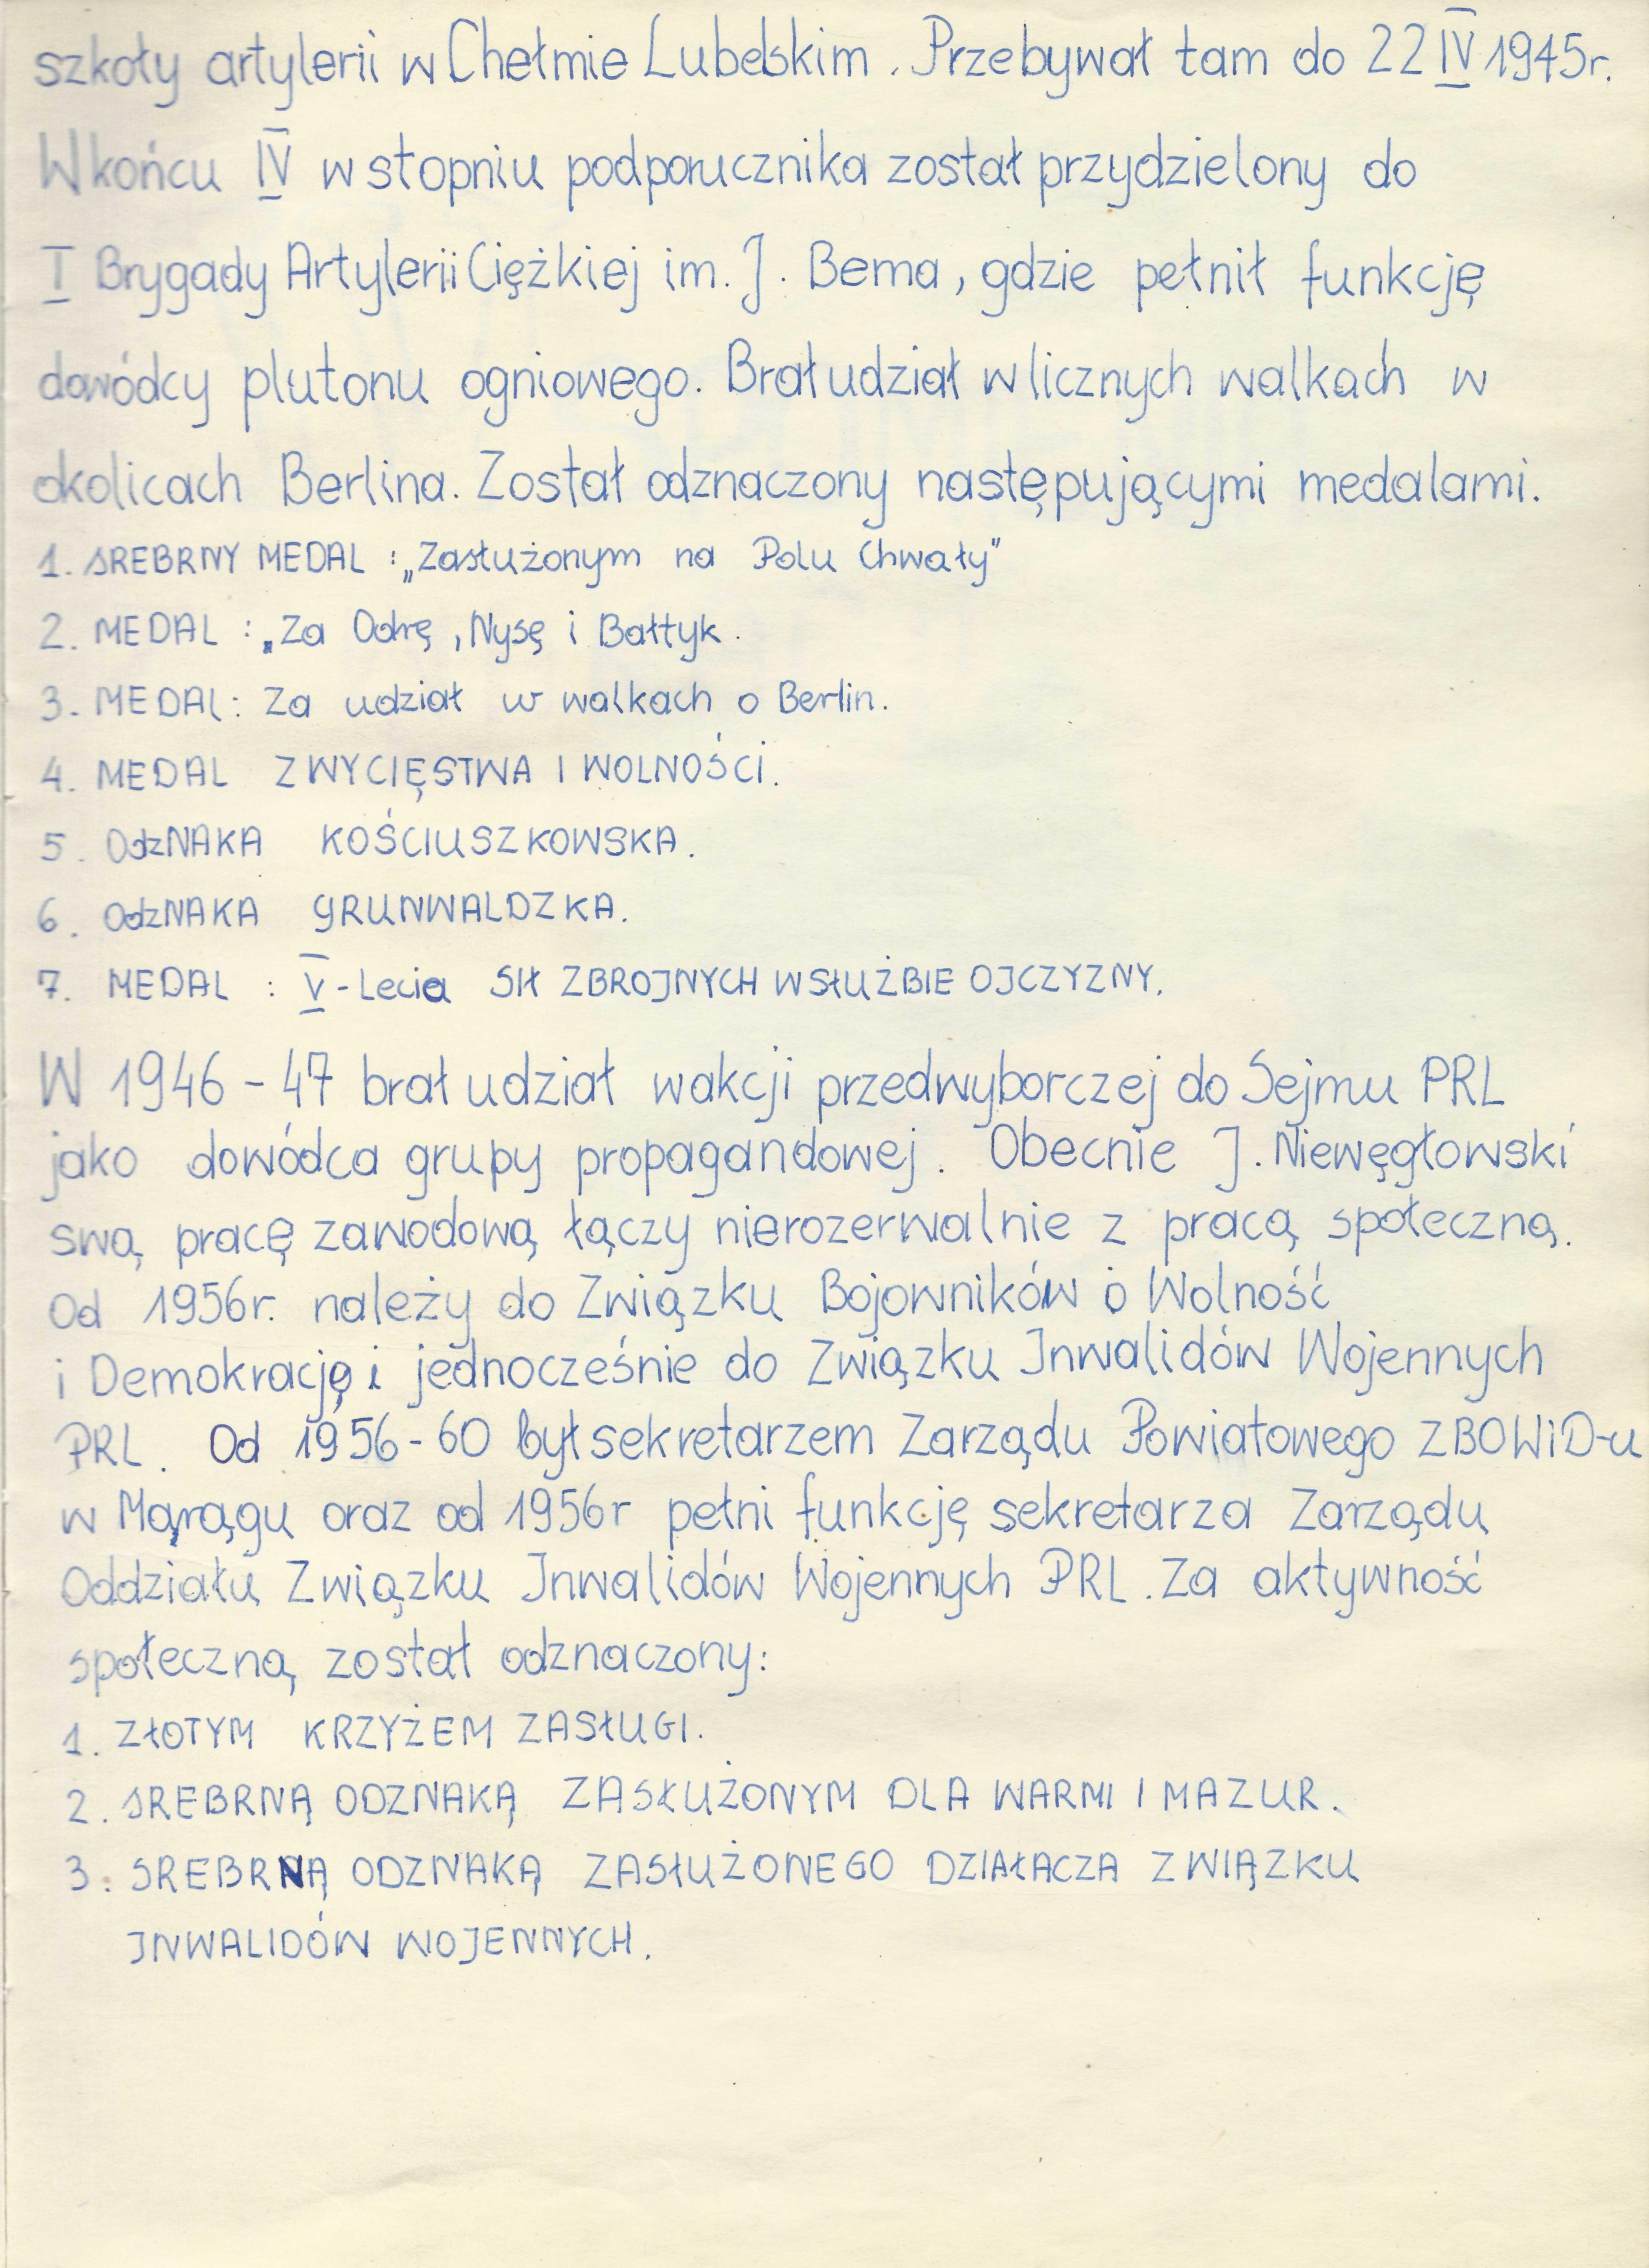 szkoły artylerii w Chełmie Lubelskim. Przebywał tam do 22 IV 1945r.
W końcu IV w stopniu podporucznika został przydzielony do
I Brygady Artylerii Ciężkiej im. J. Bema, gdzie pełnił funkcję
dowódcy plutonu ogniowego. Brał udział w licznych walkach w
okolicach Berlina. Został odznaczony następującymi medalami.
1. SREBRNY MEDAL : „Zasłużonym na Polu Chwały"
2. MEDAL : „Za Odrę, Nysę i Bałtyk.
3. MEDAL: Za udział w walkach o Berlin.
4. MEDAL ZWYCIĘSTWA I WOLNOŚCI.
5. OdzNAKA KOŚCIUSZKOWSKA.
6. OdzNAKA GRUNWALDZKA.
7. MEDAL : V-Lecia SIŁ ZBROJNYCH W SŁUŻBIE OJCZYZNY.
W 1946-47 brał udział w akcji przedwyborczej do Sejmu PRL
jako dowódca grupy propagandowej. Obecnie J. Niewęgłowski
swą pracę zawodową łączy nierozerwalnie z pracą społeczną.
Od 1956r. należy do Związku Bojowników o Wolność
i Demokrację i jednocześnie do Związku Inwalidów Wojennych
PRL. Od 1956-60 był sekretarzem Zarządu Powiatowego ZBOWiD-u
w Morągu oraz od 1956r pełni funkcję sekretarza Zarządu
Oddziału Związku Inwalidów Wojennych PRL. Za aktywność
społeczną został odznaczony:
1. ZŁOTYM KRZYŻEM ZASŁUGI.
2. SREBRNĄ ODZNAKĄ ZASŁUŻONYM DLA WARMI I MAZUR.
3. SREBRNĄ ODZNAKĄ ZASŁUŻONEGO DZIAŁACZA ZWIĄZKU
INWALIDÓW WOJENNYCH.